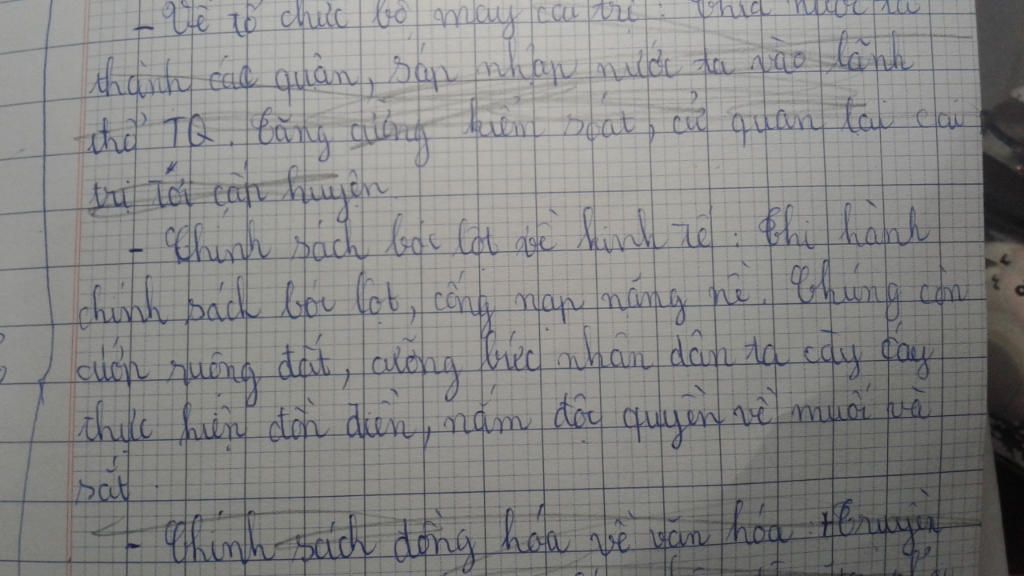 - Về tổ chức bộ máy cai trị: Chia nước ta
thành các quận, sáp nhập nước ta vào lãnh
thổ TQ. Tăng cường kiểm soát, cử quan lại cai
trị tới cấp huyện
- Chính sách bóc lột về kinh tế: Thi hành
chính sách bóc lột, cống nạp nặng nề. Chúng còn
cướp ruộng đất, cưỡng bức nhân dân ta cày cấy
thực hiện đồn điền, nắm độc quyền về muối và
sắt.
- Chính sách đồng hóa về văn hóa: + Truyền